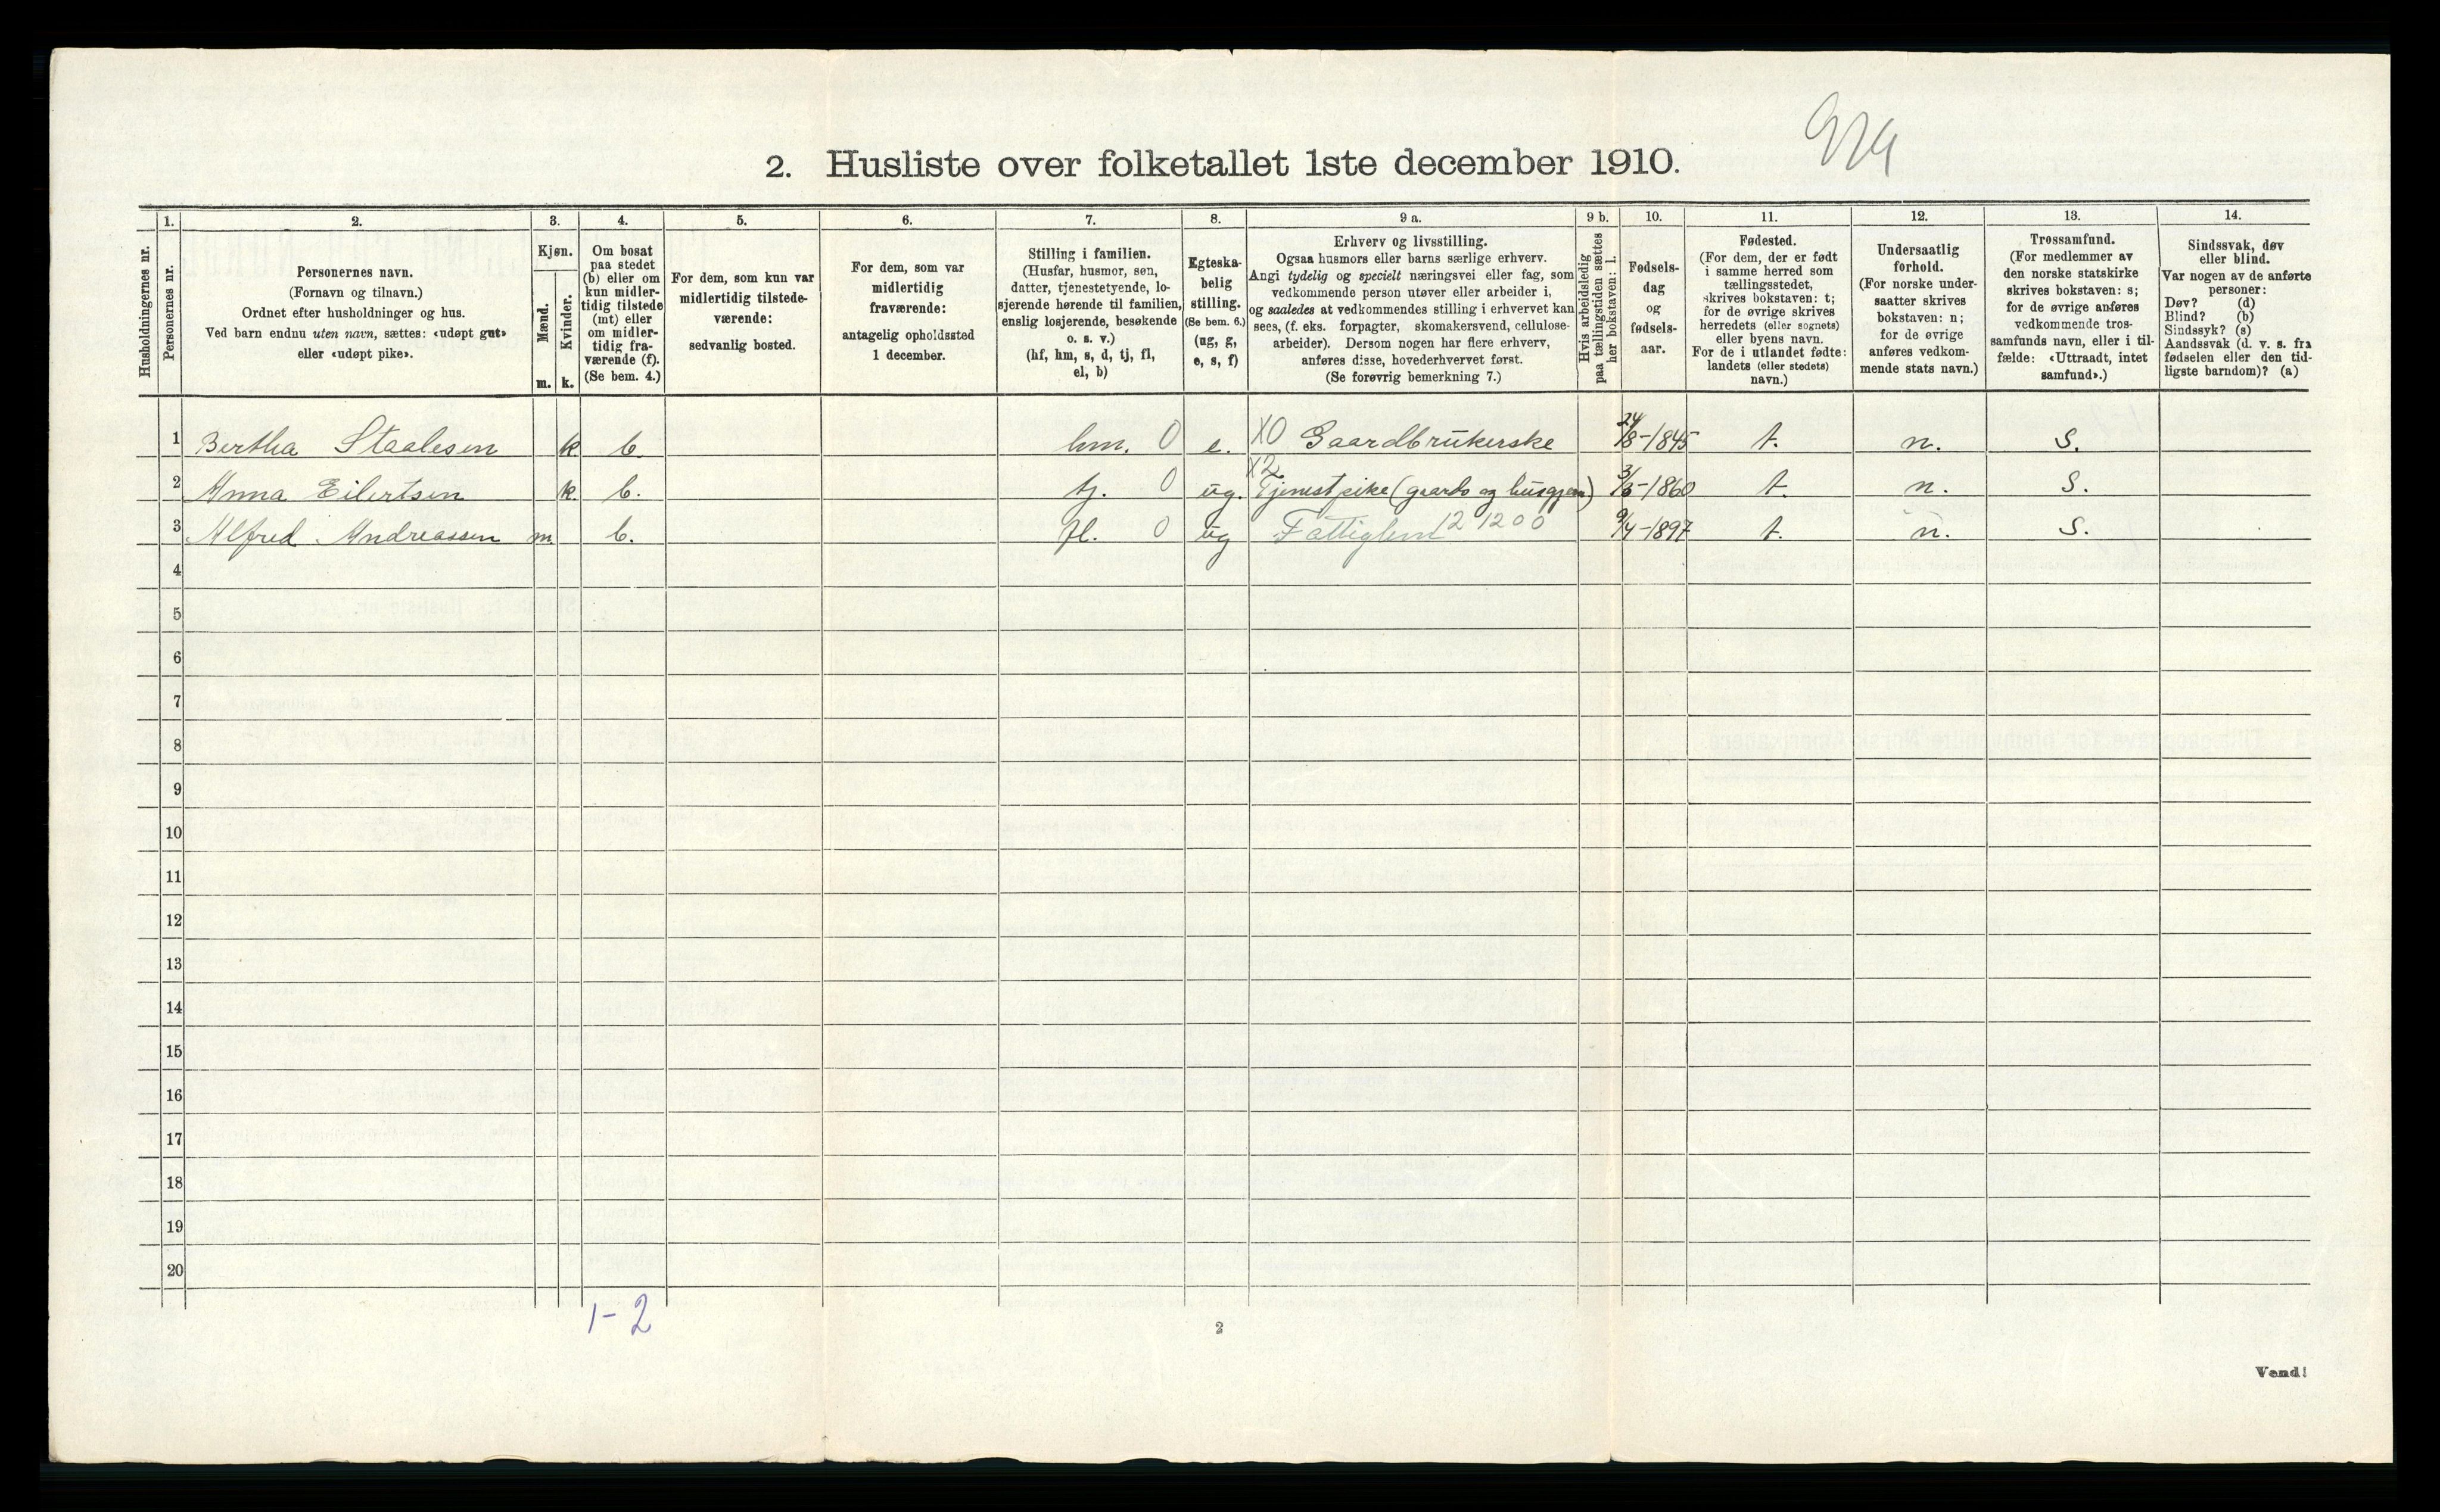 2. Husliste over folketallet 1ste december 1910.
Husholdningernes nr.
1.
Personernes nr.
2.
Personernes navn.
(Fornavn og tilnavn.)
Ordnet efter husholdninger og hus.
Ved barn endnu uten navn, sættes: «udøpt gut»
eller «udøpt pike».
3.
Kjøn.
Mænd.
Kvinder.
m. k.
4.
Om bosat
paa stedet
(b) eller om
kun midler-
tidig tilstede
(mt) eller
om midler-
tidig fra-
værende (f).
(Se bem. 4.)
5.
For dem, som kun var
midlertidig tilstede-
værende:
sedvanlig bosted.
6.
For dem, som var
midlertidig
fraværende:
antagelig opholdssted
1 december.
7.
Stilling i familien.
(Husfar, husmor, søn,
datter, tjenestetyende, lo-
sjerende hørende til familien,
enslig losjerende, besøkende
o. s. v.)
(hf, hm, s, d, tj, fl,
el, b)
8.
Egteska-
belig
stilling.
(Se bem. 6.)
(ug, g,
e, s, f)
9 a.
Erhverv og livsstilling.
Ogsaa husmors eller barns særlige erhverv.
Angi tydelig og specielt næringsvei eller fag, som
vedkommende person utøver eller arbeider i,
og saaledes at vedkommendes stilling i erhvervet kan
sees, (f. eks. forpagter, skomakersvend, cellulose-
arbeider). Dersom nogen har flere erhverv,
anføres disse, hovederhvervet først.
(Se forøvrig bemerkning 7.)
9 b.
Hvis arbeidsledig
paa tællingstiden sættes
her bokstaven: l.
10.
Fødsels-
dag
og
fødsels-
aar.
11.
Fødested.
(For dem, der er født
i samme herred som
tællingsstedet,
skrives bokstaven: t;
for de øvrige skrives
herredets (eller sognets)
eller byens navn.
For de i utlandet fødte:
landets (eller stedets)
navn.)
12.
Undersaatlig
forhold.
(For norske under-
saatter skrives
bokstaven: n;
for de øvrige
anføres vedkom-
mende stats navn.)
13.
Trossamfund.
(For medlemmer av
den norske statskirke
skrives bokstaven: s;
for de øvrige anføres
vedkommende tros-
samfunds navn, eller i til-
fælde: «Uttraadt, intet
samfund».)
14.
Sindssvak, døv
eller blind.
Var nogen av de anførte
personer:
Døv? (d)
Blind? (b)
Sindssyk? (s)
Aandssvak (d. v. s. fra
fødselen eller den tid-
ligste barndom)? (a)
1 Bertha Staalesen k b. hm. 0 e. X0 Gaardbrukerske 24/8-1845 t. n. S.
2 Anna Eilertsen k. b. tj. 0 ug. X2 Tjenestpike (gaards og husgjern) 3/3-1860 t. n. S.
3 Alfred Andreassen m. b. fl. 0 ug Fattiglem 12 1200 9/4-1897 t. n. S.
4
5
6
7
8
9
10
11
12
13
14
15
16
17
18
19
20
1-2
2
Vend!